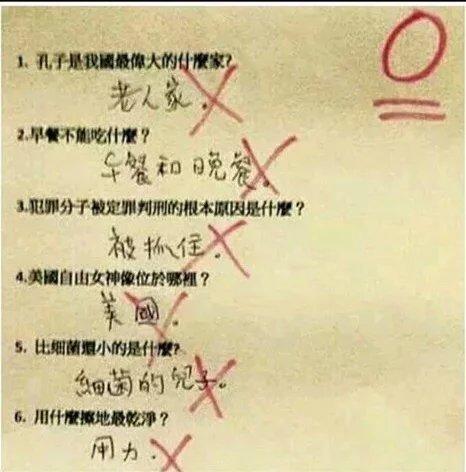 0
1. 孔子是我國最偉大的什麼家?
老人家。
2.早餐不能吃什麼？
午餐和晚餐。
3.犯罪分子被定罪判刑的根本原因是什麼？
被抓住。
4.美國自由女神像位於哪裡？
美國。
5. 比細菌還小的是什麼?
細菌的兒子。
6. 用什麼擦地最乾淨？
用力.